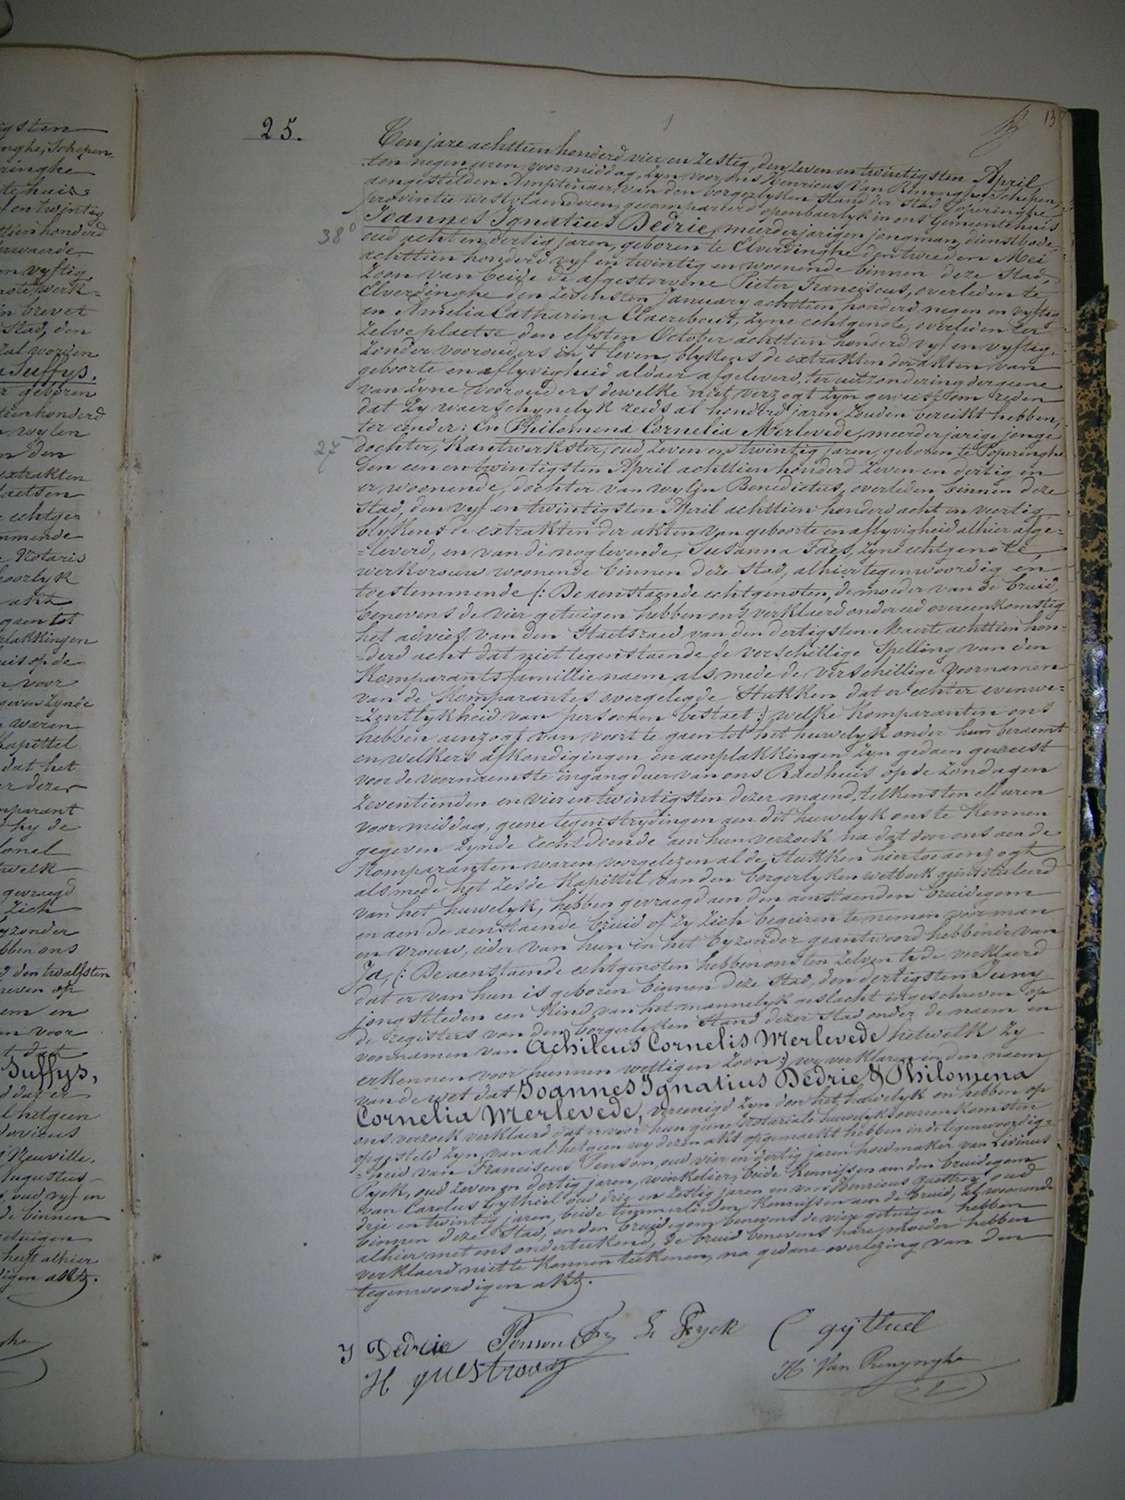 13
25.
Ten jare achttien honderd vier en zestig, den zeven en twintigsten April,
ten negen uren voor middag, zyn voor ons Henricus Van Renynghe, Schepen,
aengestelden Amptenaer van den borgerlyken stand der Stad Poperinghe
provintie westvlaenderen, gecompareerd openbaerlyk in ons Gemeentehuis
Joannes Ignatius Dedrie, meerderjarigen jongman, dienstbode,
38
oud acht en dertig jaren, geboren te Elverdinghe den tweeden Mei
achttien honderd vyf en twintig en woonende binnen deze Stad,
Zoon van beide de afgestorvene Pieter Franciscus, overleden te
Elverdinghe den zesthsten January achttien honderd negen en vyftig
en Amelia Catharina Claerebout, zyne echtgenote, overleden ter
zelve plaetse den elfsten October achttien honderd vyf en vyftig,
zonder voorouders in 't leven, blykens de extrakten der akten van
geboorte en aflyvigheid aldaer afgeleverd, ter uitzondering dergene
van zyne voorouders dewelke niet verzogt zyn geweest om reden
dat zy waerschynelyk reeds al honderd jaren zouden bereikt hebben,
ter eender: En Philomena Cornelia Merlevede, meerderjarige jonge
27
dochter, Kantwerkster, oud zeven en twintig jaren, geboren te Poperinghe
den een en twintigsten April achttien honderd zeven en dertig en
er woonende, dochter van wylen Benedictus, overleden binnen deze
Stad, den vyf en twintigsten April achttien honderd acht en veertig
blykens de extrakten der akten van geboorte en aflyvigheid alhier afge-
-leverd, en van de noglevende Susanna Faes, zyne echtgenote,
werkvrouw woonende binnen deze stad, alhier tegenwoordig en
toestemmende (: De aenstaende echtgenoten, de moeder van de bruid
benevens de vier getuigen hebben ons verklaerd onder eed overeenkomstig
het advies van den Staetsraed van den dertigsten Maerte achttien hon-
-derd acht dat niet tegenstaende de verschillige Spelling van den
Komparants famillie naem als mede de verschillige voornamen
van de Komparantes overgelegde Stukken dat er echter eenwe-
-zentlykheid van persoonen bestaet :) welke Komparanten ons
hebben aenzogt van voort te gaen tot het huwelyk onder hun beraemt
en welkers afkondigingen en aenplakkingen zyn gedaen geweest
voor de voornaemste ingangduer van ons Raedhuis op de zondagen
zeventienden en vier en twintigsten dezer maend, telkens ten elf uren
voor middag, geene tegenstrydingen aen dit huwelyk ons te kennen
gegeven zynde rechtdoende aen hun verzoek na dat door ons aen de
Komparanten waren voorgelezen al de Stukken hiertoe aenzogt
als mede het zesde Kapittel van den borgerlyken wetboek geintituleerd
van het huwelyk, hebben gevraegd aen den aenstaenden bruidegom
en aen de aenstaende bruid of zy zich begeiren te nemen voor man
en vrouw, ieder van hun in het byzonder geantwoord hebbende van
Ja, (: De aenstaende echtgenoten hebben ons ten zelven tyde verklaerd
dat er van hun is geboren binnen deze Stad, den dertigsten Juny
jongstleden een Kind van het mannelyk geslacht ingeschreven op
de registers van den borgerlyken Stand dezer Stad onder de naem en
voornamen van Achileus Cornelis Merlevede hetwelk zy
erkennen voor hunnen wettigen zoon:) wy verklaren in den naem
van de wet dat Joannes Ignatius Dedrie & Philomena
Cornelia Merlevede, vereenigd zyn door het huwelyk en hebben op
ons verzoek verklaerd dat er voor hun geene Notariale huwelyksovereenkomsten
opgesteld zyn, van al hetgeen wy dezen akt opgemaekt hebben in de tegenwoordig-
-heid van Franciscus Penson, oud vier en dertig jaren houdmaker van Livinus
Fyck, oud zeven en dertig jaren, winkelier, beide Kennissen aen den bruidegom
van Carolus Gythiel oud drie en zestig jaren en van Henricus questroy oud
drie en twintig jaren, beide timmerlieden, Kennissen aen de bruid, al woonende
binnen deze Stad, en den bruidegom benevens de vier getuigen hebben
alhier met ons onderteekend, de bruid benevens hare moeder hebben
verklaerd niet te konnen teekenen, na gedane overlezing van den
tegenwoordigen akt.
J Dedrie Penson Fr L Fyck C gythiel
H questrooy H Van Renynghe